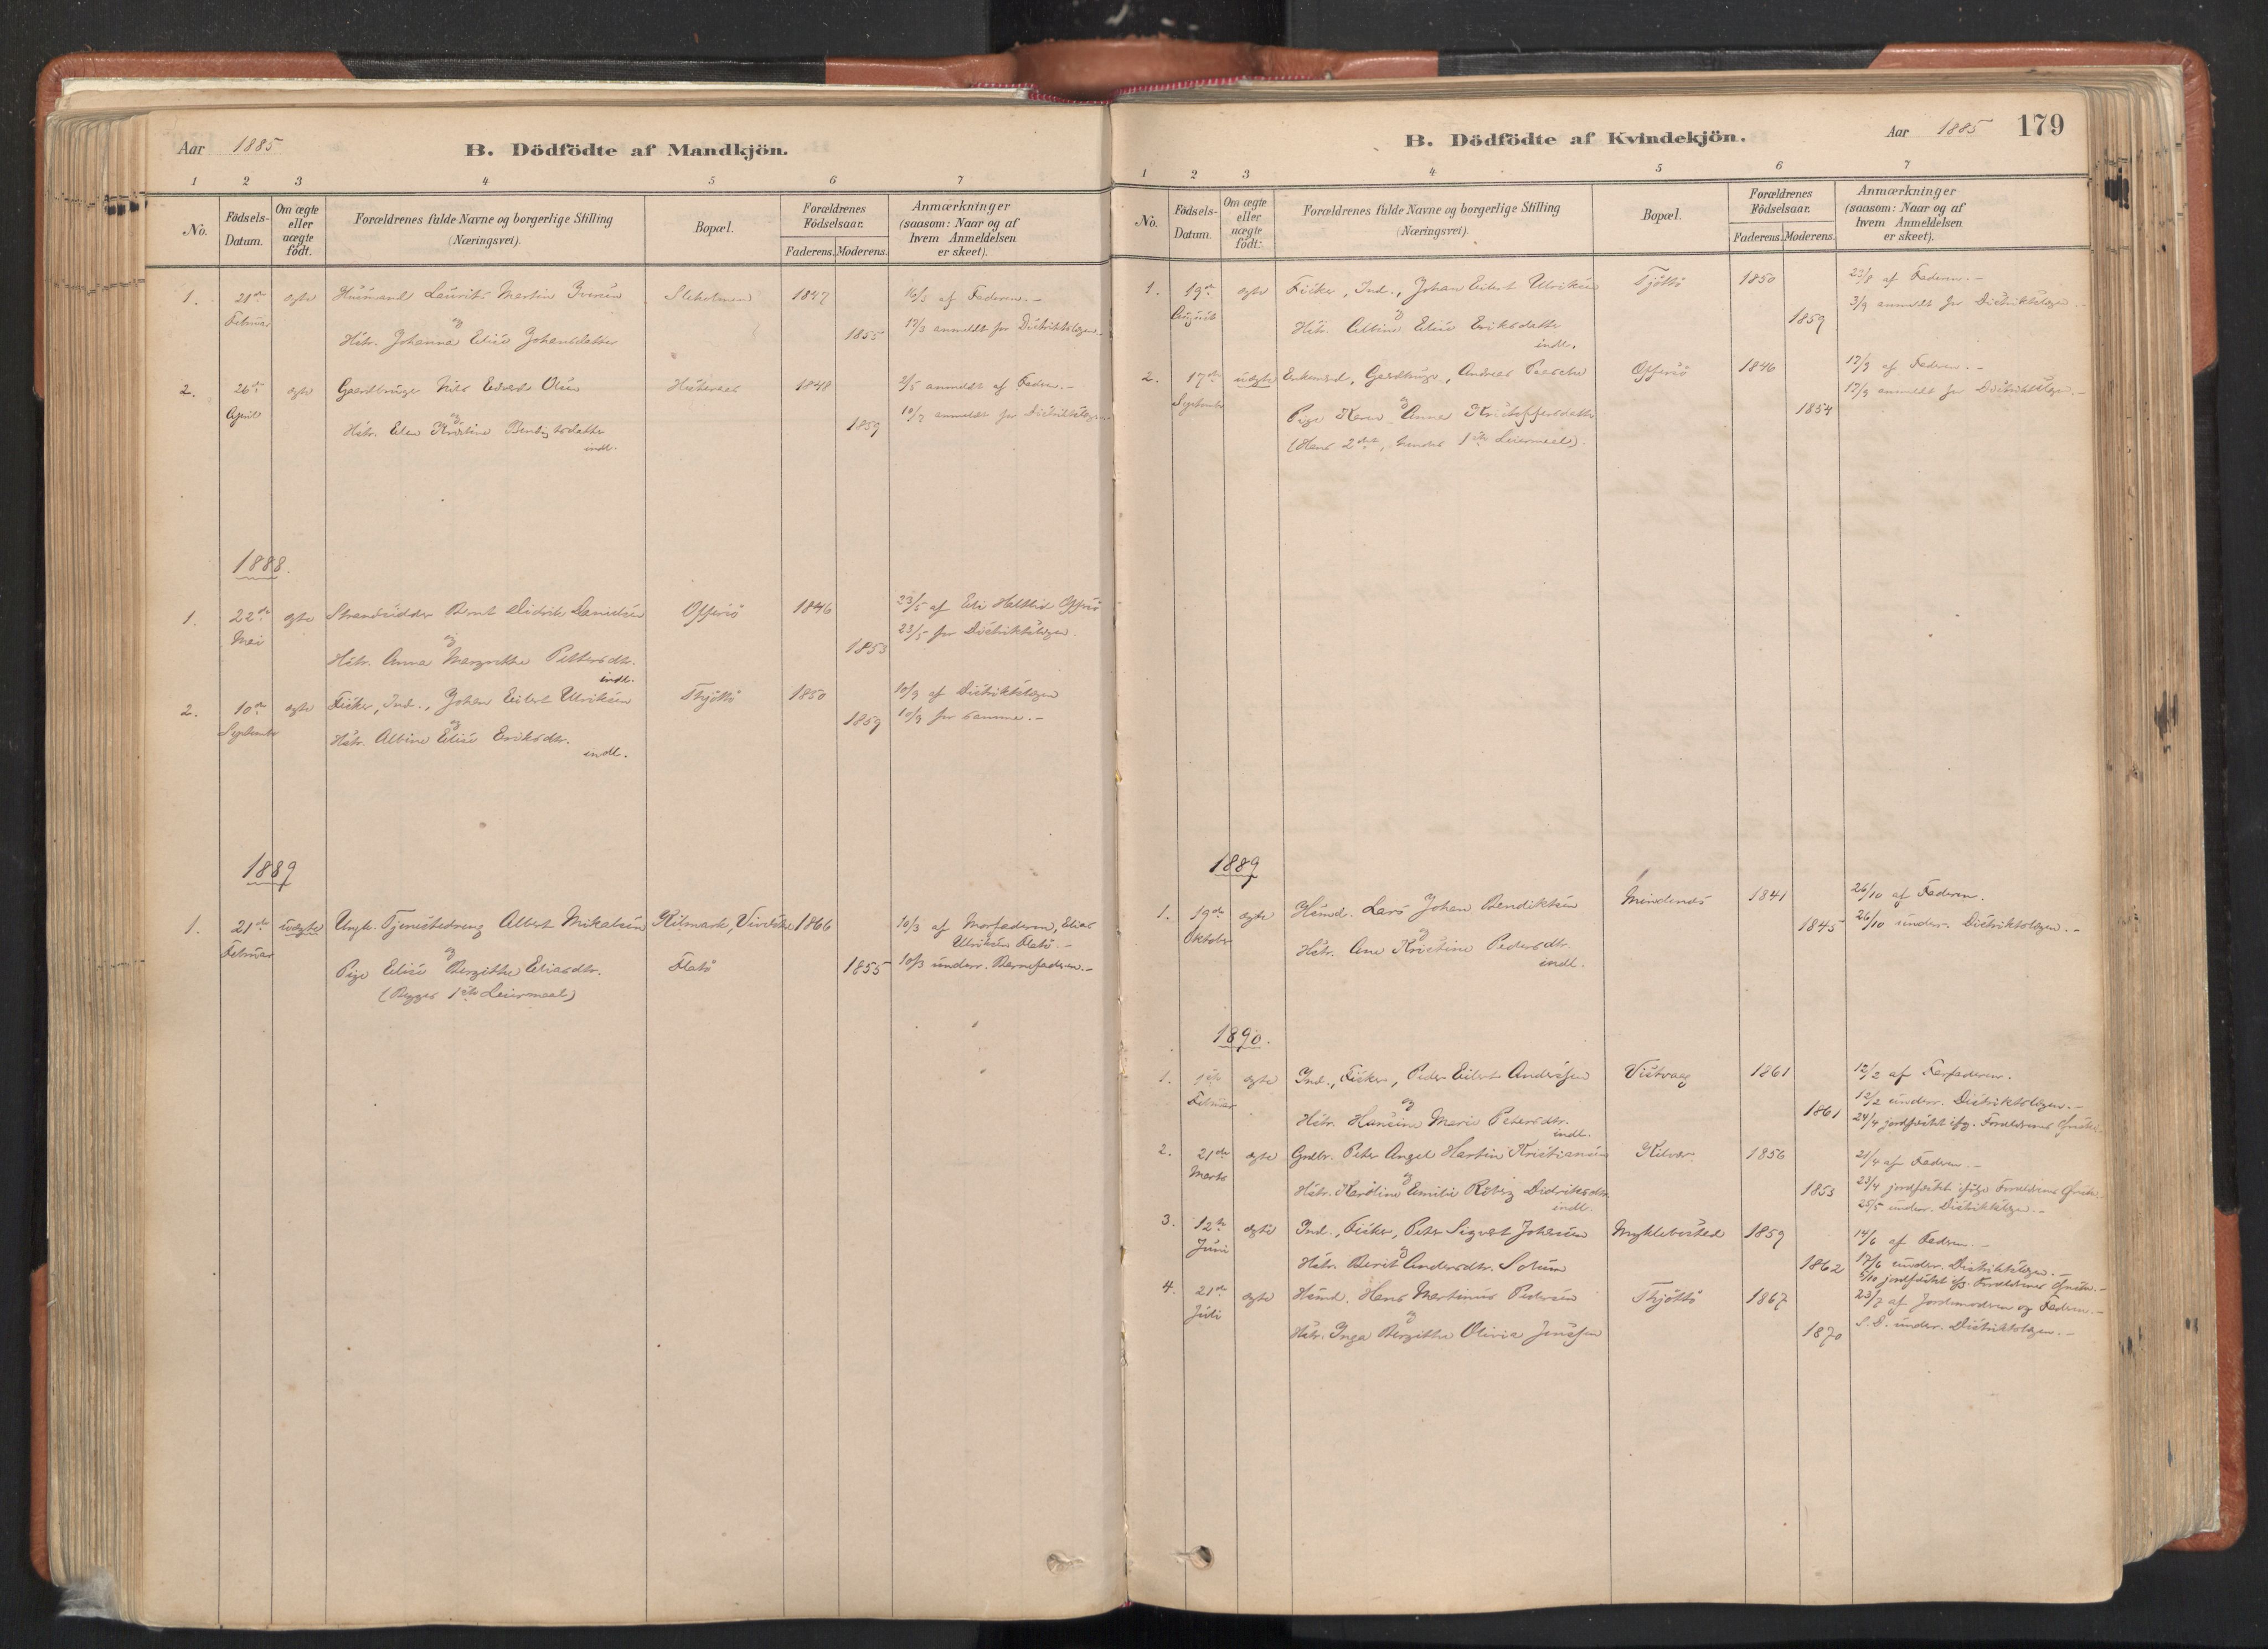 Aar 1885
B. Dödfödte af Mandkjön.
1 2 3 4 5 6 7
No.
Födsels-Datum.
Om ægte eller uægte födt.
Forældrenes fulde Navne og borgerlige Stilling (Næringsvei).
Bopæl.
Forældrenes Födselsaar.
Faderens. Moderens.
Anmærkninger (saasom: Naar og af hvem Anmeldelsen er skeet).
1. 21de ægte Husmand Laurits Martin Iversen 1847 16/3 af Faderen.-
Februar og 17/3 anmeldt for Distriktslægen.-
Hstr. Johanna Elise Johansdatter 1855
2. 26de ægte Gaardbruger Nils Olsen 1848 2/5 anmeldt af Faderen.-
April og anmeldt for Distriktslægen
Hstr. Elen Kristine 1859
indl.
1888.
1. 22de ægte Strandsidder Bernt Didrik Danielsen Offersö 1846 23/5 af
Mai og 23/5 for Distriktslægen.
Hstr. Anna Margrethe Pettersdtr. 1853
indl.
2. 10de ægte Fisker, Ind., Johan Eilert Ulriksen Thjöttö 1850 10/9 af Distriktslægen
September og 1859 10/9 for samme.-
Hstr. Albine Elise Eriksdtr.
indl.
1889
1. 21de uægte Ungk. Tjenestedreng Albert Mikalsen Kilmark, 1866 10/3 af Morfaderen, Elias
Februar og Ulriksen Flatö.-
Pige Elise Bergithe Eliasdtr. Flatö 1855 10/3 underr. Barnefaderen.-
(Begges 1ste Leiermaal)
B. Dödfödte af Kvindekjön.
Aar 1885 179
1 2 3 4 5 6 7
No.
Födsels-Datum.
Om ægte eller uægte födt.
Forældrenes fulde Navne og borgerlige Stilling (Næringsvei).
Bopæl.
Forældrenes Födselsaar.
Faderens. Moderens.
Anmærkninger (saasom: Naar og af hvem Anmeldelsen er skeet).
1. 19de ægte Fisker, Ind., Johan Eilert Ulriksen Tjöttö 1850 22/8 af Faderen.-
August og 3/9 anmeldt for Distriktslægen.-
Hstr. Albine Elise Eriksdatter 1859
indl.
2. 17de uægte Enkemd., Gaardbruger, Andreas Offersö 1846 17/9 af Faderen.-
September og 17/9 anmeldt for Distriktslægen.-
Pige Karen Anna Kristoffersdatter 1854
(Hans 2det, hendes 1ste Leiermaal).
1889
1. 19de ægte Husmd. Lars Johan Bendiktsen Mindenes 1841 26/10 af Faderen.
Oktober og 1845 26/10 underr. Distriktslægen.-
Hstr. Ane Kristine Pedersdtr.
indl.
1890.
1. 1ste ægte Ind., Fisker, Peder Eilert Andersen Vistvaag 1861 12/2 af Farfaderen.
Februar og 12/2 underr. Distriktslægen.-
Hstr. Hansine Marie Petersdtr. 1861 24/4 jordfæstet ifg. Forældrenes Önske.
indl.
2. 21de ægte Grdbr. Peter Angel Hartvin Kristiansen Kilvær 1856 21/4 af Faderen.-
Marts og 23/4 jordfæstet ifölge Forældrenes Önske.-
Hstr. Karoline Emilie Didriksdtr. 1853 25/5 underr. Distriktslægen.-
indl.
3. 12te ægte Ind., Fisker, Peter Sigvart Johnsen Myklebostad 1859 14/6 af Faderen.-
Juni og 17/6 underr. Distriktslægen.-
Hstr. Berit Andersdtr. Solum 1862 5/10 jordfæstet ifg. Forældrenes Önske.-
4. 21de ægte Husmd. Hans Martinus Pedersen Thjöttö 1867 23/7 af Jordmoderen og Faderen.-
Juli og S. D. underr. Distriktslægen.-
Hstr. Inga Bergithe Olivia Jenssen 1870